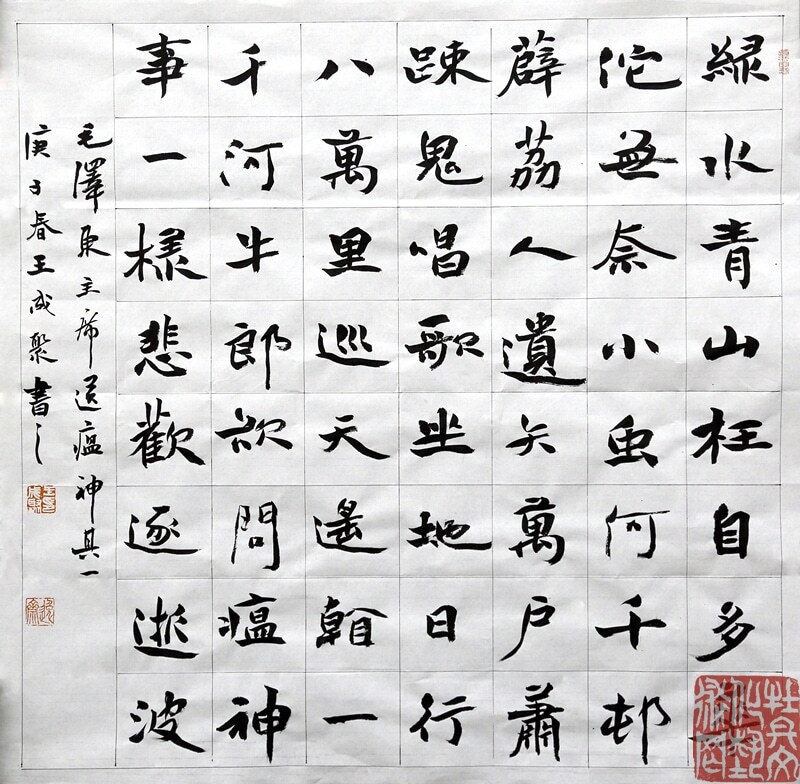 緑水青山枉自多華
佗無奈小虫何千邨
薜荔人遺矢萬戶蕭
疎鬼唱歌坐地日行
八萬里巡天遙看一
千河牛郎欲問瘟神
事一樣悲歡逐逝波
毛澤東主席送瘟神其一
庚子春王成聚書之